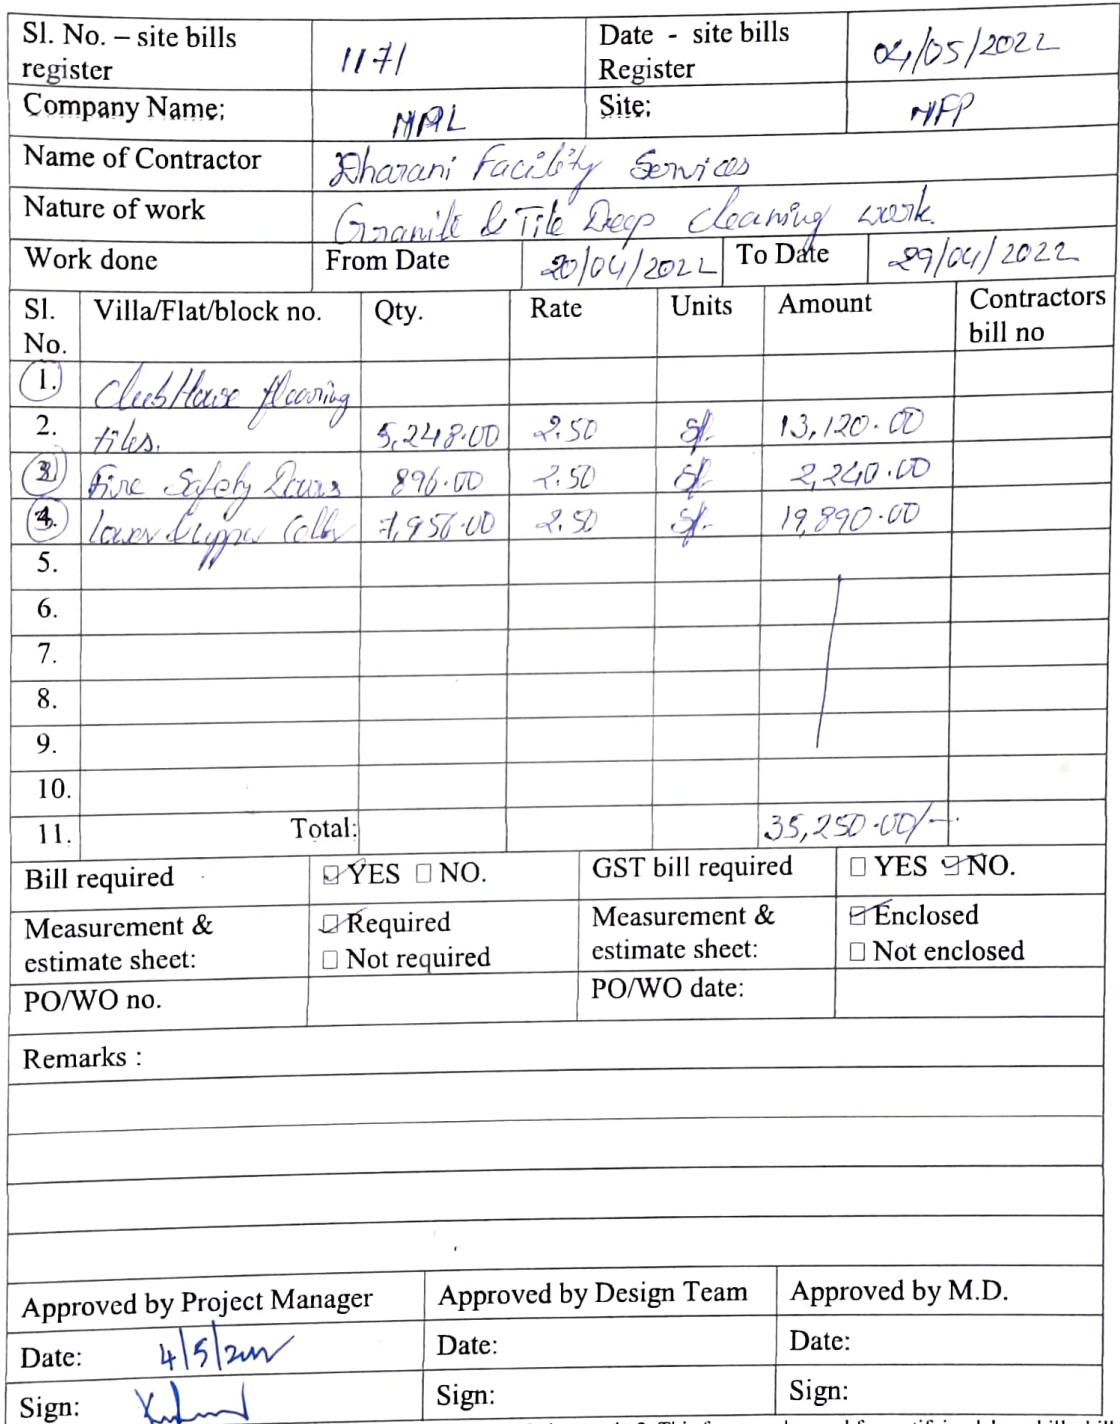 Sl. No. – site bills register 1171 Date - site bills Register 04/05/2022
Company Name: MPL Site: MFP
Name of Contractor Dharani Facility Services
Nature of work Granite & Tile Deep cleaning work.
Work done From Date 20/04/2022 To Date 29/04/2022
Sl. No. Villa/Flat/block no. Qty. Rate Units Amount Contractors bill no
1. Club House flooring
2. tiles. 5,248.00 2.50 sf. 13,120.00
3. Fire Safety Doors 896.00 2.50 sf. 2,240.00
4. lower & upper 7,956.00 2.50 sf. 19,890.00
5.
6.
7.
8.
9.
10.
11. Total: 35,250.00/-
Bill required YES NO. GST bill required YES NO.
Measurement & estimate sheet: Required Measurement & estimate sheet: Enclosed
Not required Not enclosed
PO/WO no. PO/WO date:
Remarks :
Approved by Project Manager Approved by Design Team Approved by M.D.
Date: 4/5/2022 Date: Date:
Sign: Sign: Sign: